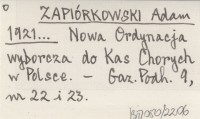 ZAPIÓRKOWSKI Adam
1921... Nowa Ordynacja
wyborcza do Kas Chorych
w Polsce. – Gaz. Podh. 9,
nr 22 i 23.